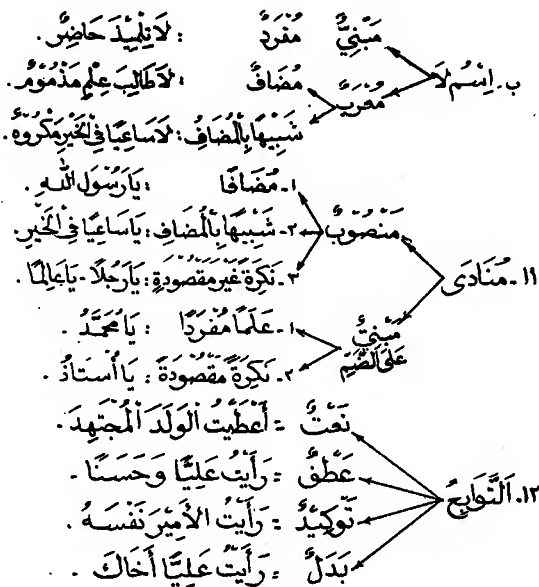 مَبْنِيٌّ مُفْرَدٌ : لَا تِلْمِيْذَ حَاضِرٌ.
ب. اِسْمُ لَا
مُعْرَبٌ مُضَافٌ : لَا طَالِبَ عِلْمٍ مَذْمُوْمٌ.
شَبِيْهًا بِالْمُضَافِ : لَا سَاعِيًا فِي الْخَيْرِ مَكْرُوْهٌ.
١١. مُنَادَى
مَنْصُوْبٌ
١. مُضَافًا : يَا رَسُوْلَ اللهِ.
٢. شَبِيْهًا بِالْمُضَافِ : يَا سَاعِيًا فِي الْخَيْرِ.
٣. نَكِرَةً غَيْرَ مَقْصُوْدَةٍ : يَا رَجُلًا - يَا عَالِمًا.
مَبْنِيٌّ عَلَى الضَّمِّ
١. عَلَمًا مُفْرَدًا : يَا مُحَمَّدُ.
٢. نَكِرَةً مَقْصُوْدَةً : يَا أُسْتَاذُ.
١٢. اَلتَّوَابِعُ
نَعْتٌ = أَعْطَيْتُ الْوَلَدَ الْمُجْتَهِدَ.
عَطْفٌ = رَأَيْتُ عَلِيًّا وَحَسَنًا.
تَوْكِيْدٌ = رَأَيْتُ الْأَمِيْرَ نَفْسَهُ.
بَدَلٌ = رَأَيْتُ عَلِيًّا أَخَاكَ.